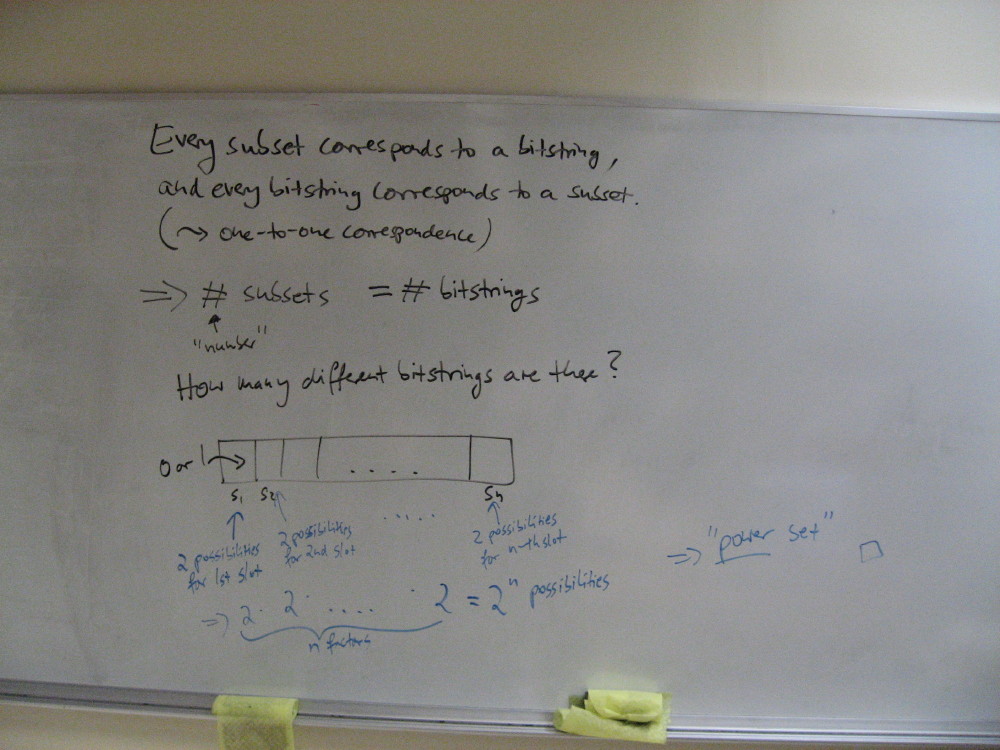 Every subset corresponds to a bitstring,
and every bitstring corresponds to a subset.
(⇝ one-to-one correspondence)
⇒ # subsets = # bitstrings
↑
"number"
How many different bitstrings are there?
0 or 1 → . . . .
s₁ s₂ sₙ
2 possibilities for 1st slot
2 possibilities for 2nd slot
.....
2 possibilities for n-th slot
⇒ 2 · 2 · .... · 2 = 2ⁿ possibilities
n factors
⇒ "power set" □